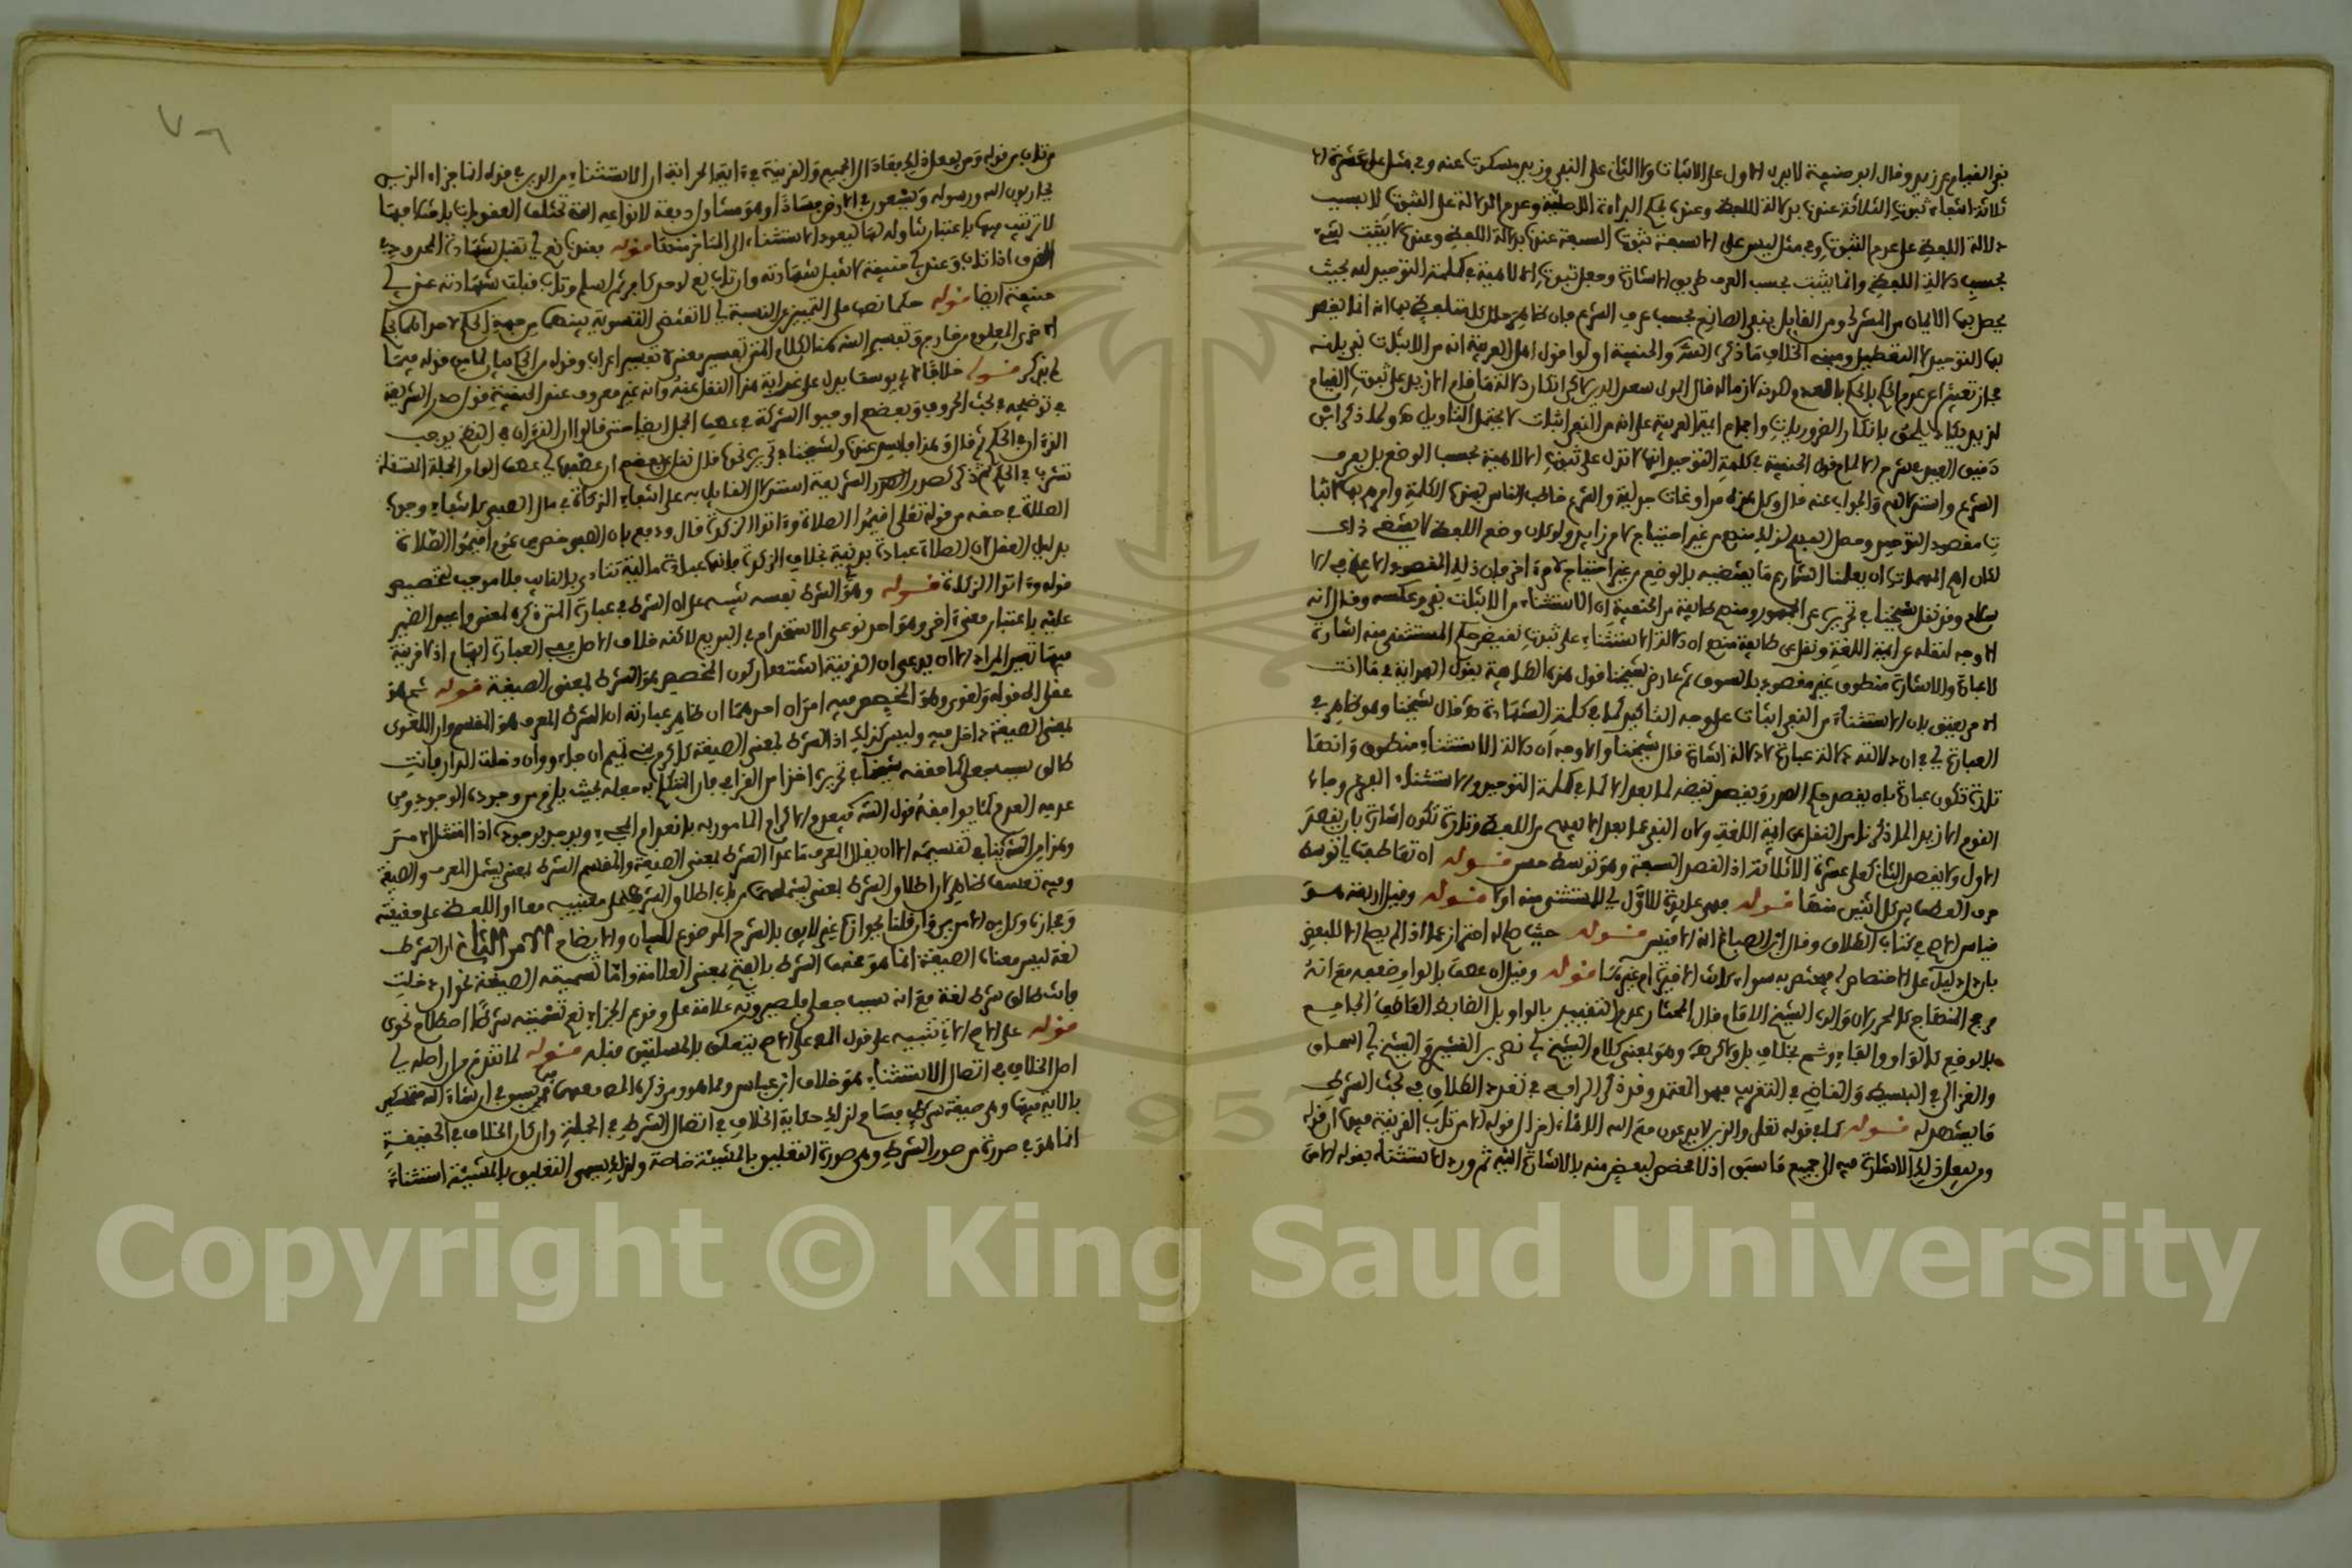 نفى القيام عن زيد وقال ابو حنيفة لا يدل الاول على الاثبات ولا الثاني على النفي وزيد مسكوت عنه وفي مثل على عشرة الا
ثلاثة انتفاء ثبوت الثلاثة عندنا بدلالة اللفظ وعنده بحكم البراءة الاصلية وعدم الدلالة على الثبوت لا بسبب
دلالة اللفظ على عدم الثبوت وفي مثل ليس على الا سبعة ثبوت السبعة عندنا بدلالة اللفظ وعنده لا يثبت شيء
بحسب دلالة اللفظ وانما يثبت بحسب العرف طريق الاشارة وجعل ثبوت الالاهية في كلمة التوحيد لله بحيث
يحصل بها الايمان من المشرك ومن القايل بنفي الصانع بحسب عرف الشرع فان ظاهر حال كل متلفظ بها انه انما يقصد
بها التوحيد لا التعطيل ومبنى الخلاف ما ذكره الشـ والحنفية اولوا قول اهل العربية انه من الاثبات نفي بانه
مجاز تعبيرا عن عدم الحكم بالحكم بالعدم لكونه لازما له قال المولى سعد الدين انكار دلالة ما قام الا زيد على ثبوت القيام
لزيد يكاد يلحق بانكار الضروريات واجماع ايمة العربية على انه من النفي اثبات لا يحتمل التاويل ولما ذكر ابن
دقيق العيد في شرح الالمام قول الحنفية في كلمة التوحيد انها لا تدل على ثبوت الالاهية بحسب الوضع بل بعرف
الشرع واستدلالهم والجواب عنه قال وكل هذه مراوغات جدلية والشرع خاطب الناس بهذه الكلمة وامرهم بها لاثبا
ت مقصود التوحيد وحصل الفهم لذلك منهم من غير احتياج لامر زايد ولو كان وضع اللفظ لا يقتضي ذلك
لكان اهم المهمات ان يعلمنا الشارع ما يقتضيه بالوضع من غير احتياج لامر اخر فان ذلك المقصود الاعظم في الا
سلام وقد نقل شيخنا في تحريره عن الجمهور ومنهم طايفة من الحنفية ان الاستثناء من الاثبات نفي وعكسه وقال انه
الاوجه لنقله عن ايمة اللغة ونقل عن طايفة منهم ان دلالة الاستثناء على ثبوت نقيض حكم المستثنى منه اشارة
لا عبارة والاشارة منطوق غير مقصود بالسوق ثم عارض شيخنا قول هذه الطايفة بقول الهداية في ما انت
الا حر يعتق لان الاستثناء من النفي اثبات على وجه التاكيد كما في كلمة الشهادة قال شيخنا وهو ظاهر في
العبارة اي في ان دلالته دلالة عبارة لا دلالة اشارة قال شيخنا والاوجه ان دلالة الاستثناء منطوق وانها
تارة تكون عبارة بان يقصد حكم الصدر ويقصد نقيضه لما بعد الا كما في كلمة التوحيد والاستثناء المفرغ وجاء
القوم الا زيدا لما ذكرنا من النقل عن ايمة اللغة ولان النفي عما بعد الا يفهم من اللفظ وتارة تكون اشارة بان يقصد
الاول ولا يقصد الثاني كعلى عشرة الا ثلاثة اذ القصد السبعة وهو توسط حسن قوله ان تعاطفت اي توسط
حرف العطف بين كل اثنين منها قوله فهي عايدة للاول اي للمستثنى منه اولا قوله وقيل ان بعد هـو
قياس الاصح في كتاب الطلاق وقال ابن الصباغ انه الاقيس قوله حيث صلح له احتراز عما اذا لم يصلح الا للبعض
بان دل دليل على اختصاصه فيختص به سواء كانت الاخيرة ام غيرها قوله وقيل ان عطف بالواو ضعفه مع انه
مرجح المنهاج كالمحرر لان والدي الشيخ الامام قال المختار عدم التقييد بالواو بل الضابط العاطف الجامع
بالوضع كالواو والفاء وثم بخلاف بل ولكن هـ وهو لمعنى كلام الشيخ في نصه بن القشيري والشيخ ابي اسحاق
والغزالي في البسيط والقاضي في التقريب فهو المعتمد وقد ذكر الرافعي في تعدد الطلاق في بحث الشرط
ما يشهد له قوله كما في قوله تعالى والذين لا يدعون مع الله الاها اخر الى قوله الا من تاب القرينة فيها ان قوله
ومن يفعل ذلك الاشارة فيه الى جميع ما سبق اذ لا مخصص لبعض منه بالاشارة اليه ثم ورد الاستثناء بقوله الا من
من تاب من قوله ومن يفعل ذلك فعاد الى الجميع والقرينة في اية الحرابة ان الاستثناء من الدين في قوله انما جزاء الذين
يحاربون الله ورسوله ويسعون في الارض فسادا وهو متناول دفعة لانواعه التي تختلف العقوبات باختلافها
لا ترتيب فيها باعتبار تناوله لها ليعود الاستثناء الى المتاخر منها قوله فعندنا نعم اي تقبل شهادة المحدود في
القذف اذا تاب وعند ابي حنيفة لا تقبل شهادته وان تاب نعم لو حد كافر ثم اسلم وتاب قبلت شهادته عند ابي
حنيفة ايضا قوله حكما نصب على التمييز عن النسبة اي لا تقتضي التسوية بينهما من جهة الحكم لاحداهما على
الاخرى المعلوم من خارج وتفسير الشـ هذا الكلام المتن تفسير معنى لا تفسير اعراب وقوله من الجانبين قوله فيما
لم يذكر قوله خلافا لابي يوسف يدل على غرابة هذا النقل عنه وانه غير معروف عند الحنفية قول صدر الشريعة
في توضيحه في بحث الحروف وبعضهم اوجبوا الشركة في عطف الجمل ايضا حتى قالوا ان القران في النظم يوجب
القران في الحكم ثم قال وهذا فاسد عندنا ولشيخنا في تحريره نحوه قال نقل عن بعضهم ان عطف اي عطف الواو الجملة المستقلة
تشرك في الحكم ثم ذكر صدر الشريعة استدلال القايل به على انتفاء الزكاة في مال الصبي كانتفاء وجوب
الصلاة في حقه من قوله تعالى اقيموا الصلاة واتوا الزكاة قال ودفع بان الصبي خص من عموم اقيموا الصلاة
بدليل العقل لان الصلاة عبادة بدنية بخلاف الزكاة فانها عبادة مالية تتادى بالنايب فلا موجب لتخصيص
قوله واتوا الزكاة قوله وهو الشرط نفسه نبه به على ان الشرط في عبارة المتن ذكره لمعنى واعيد الضمير
عليه باعتبار معنى اخر وهو احد نوعي الاستخدام في البديع لاكنه خلاف الاصل ففي العبارة ابهام اذ لا قرينة
فيها تعين المراد الا ان يدعى ان القرينة استبعاد كون المخصص هو الشرط لمعنى الصيغة قوله ثم هو
عقلي الى قوله ولغوي وهو المخصص فيه امران احدهما ان ظاهر عبارته ان الشرط المعرف هو المقسم وان اللغوى
لمعنى الصيغة داخل فيه وليس كذلك اذ الشرط لمعنى الصيغة كاكرم بني تميم ان جاءوا وان دخلت الدار فانت
طالق سبب جعلي كما حققه شيخنا في تحريره اخذا من القرافي بان المتكلم به جعله بحيث يلزم من وجوده الوجود ومن
عدمه العدم كما يوافقه قول الشـ فينعدم الاكرام المامور به بانعدام المجيء ويوجد بوجوده اذا امتثل الامـر
وهذا من الشـ يتاتى تقسيمه الا ان يقال المعرف ما عدا الشرط لمعنى الصيغة والمقسم الشرط لمعنى يشمل المعرف والصيغة
وفيه تعسف ظاهر لان اطلاق الشرط لمعنى يشملهما من باب اطلاق المشترك على معنييه معا او اللفظ على حقيقته
ومجازه وكل من الامرين وان قلنا بجوازه غير لايق بالشرح الموضوع للبيان والايضاح الامر الثاني ان الشرط
لغة ليس معناه الصيغة انما هو عندهم الشرط بالفتح لمعنى العلامة واما تسمية الصيغة نحو ان دخلت
فانت طالق شرطا لغة مع انه سبب جعلي فلصيرورته علامة على وقوع الجزاء نعم تسميته شرطا اصطلاح نحوي
قوله على الاصح الاتي تنبيه على قول المص على الاصح يتعلق بالمسئلتين قبله قوله لما تقدم من ان اصله اي
اصل الخلاف في اتصال الاستثناء هو خلاف ابن عباس وما هو ومن ذكره المص معه في ان شاء الله متمسكين
بالاية فيها وهو صيغة شرط فسماع لذلك حكاية الخلاف في اتصال الشرط في الجملة وان كان الخلاف في الحقيقة
انما هو في صورة من صور الشرط وهو صورة التعليق بالمشيئة خاصة ولذلك يسمى التعليق بالمشيئة استثناء
٧٦
Copyright © King Saud University
1957